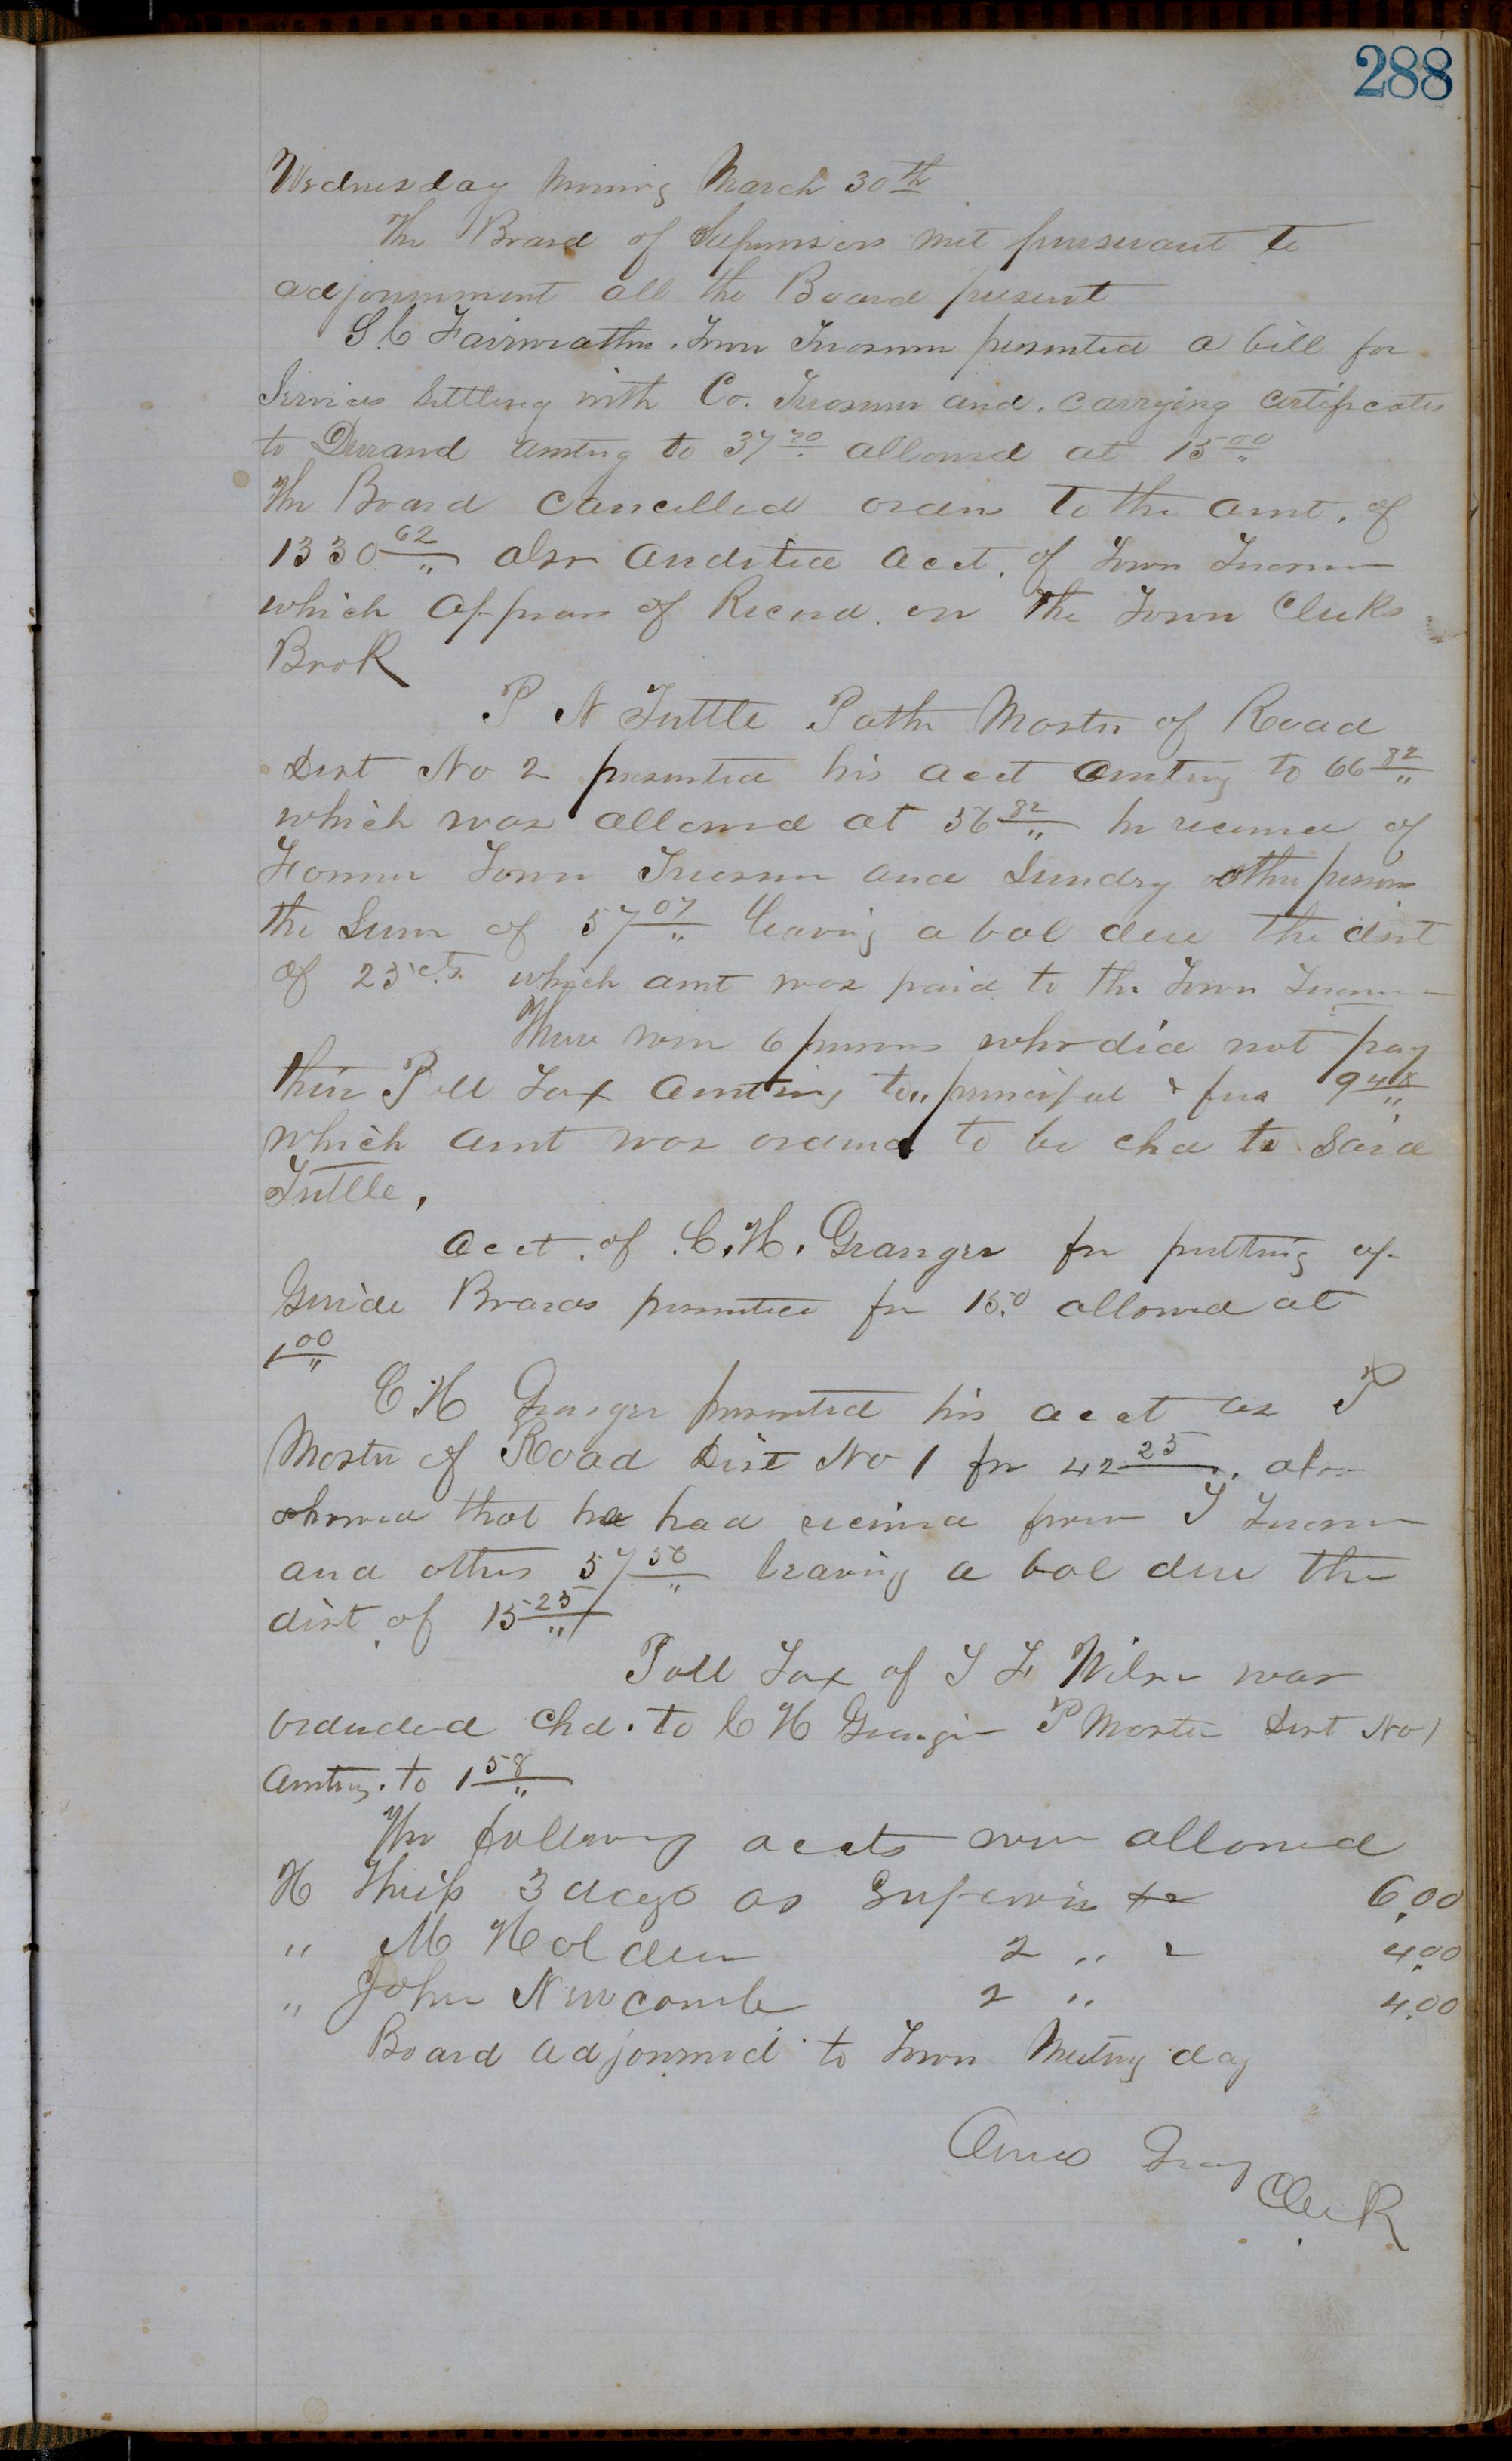 288
Wednesday Morning March 30th
The Board of Supervisors met pursuant to
adjournment all the Board present
S. C. Fairweather. Town Treasurer presented a bill for
Services Settling with Co. Treasurer and. carrying Certificates
to Durand amtng to 37 70 allowed at 15 00
The Board Cancelled orders to the amt. of
1330 62 also audited acct. of Town Treasurer
which appears of Record. on the Town Clerks
Book
P N Tuttle Path Master of Road
Dist No 2 presented his acct amting to 66 82
which was allowed at 56 82 he received of
Former Town Treasurer and Sundry other persons
the Sum of 57 07 leaving a bal due the dist
of 25 cts. which amt was paid to the Town Treasurer
There were 6 persons who did not pay
their Poll Tax amting to,, principal & fees 9 48
which amt was ordered to be chd to Said
Tuttle,
acct. of C. H. Granger for putting up
Guide Boards presented for 15.0 allowed at
1 00
C. H Granger presented his acct as P
Master of Road Dist No 1 for 42 25. also
showed that he had received from T Treasurer
and others 57 50 leaving a bal due the
dist. of 15 25
Poll Tax of T F Wilson was
ordended Chd. to C H Granger P Master Dist No 1
amting. to 1 58
The following accts were allowed
H 3 days as Supervisor 6.00
" M Holden 2 " 4.00
" John Newcomb 2 " 4.00
Board adjourned to Town Meeting day
Amos Gray
Clerk